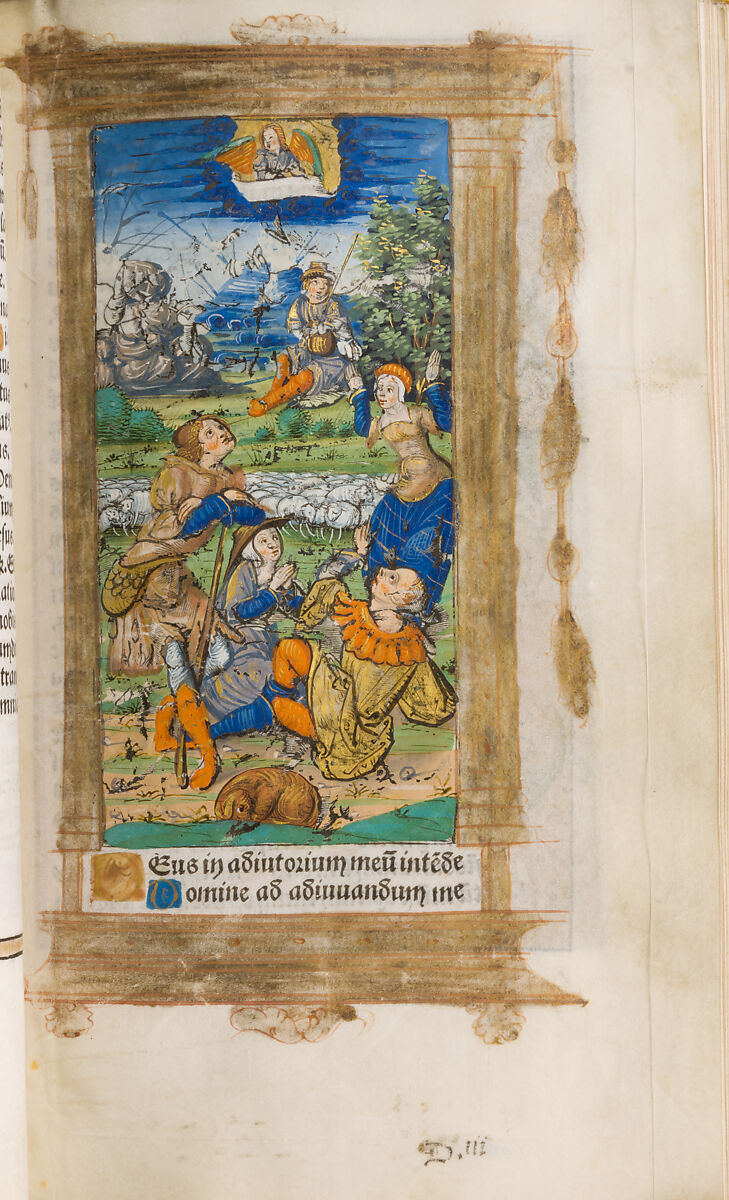 Eus in adiutorium meū intēde
Domine ad adiuuandum me
D.iii